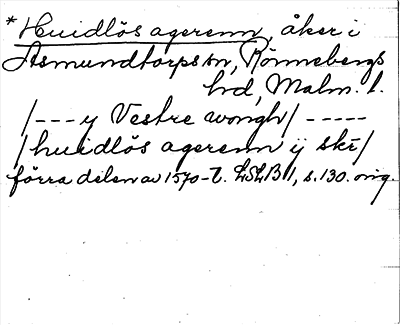 *Huidlös agerenn, åker i
Asmundtorps sn, Rönnebergs
hd, Malm. l.
/---y Vestre wongh/-----
/huidlös agerenn ij skr/
förra delen av 1570-t. LSLB 1, s. 130. orig.